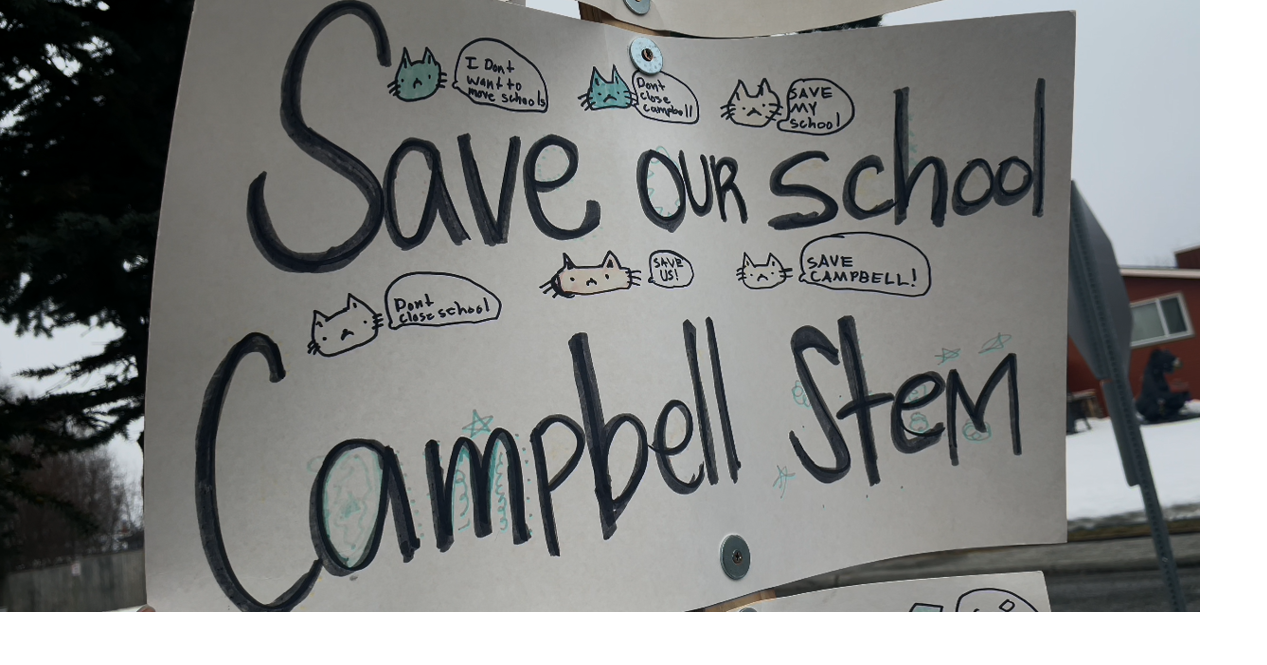 I Dont
want to
move schools
Dont
close
campbell
SAVE
MY
school
Save OUR school
Dont
close school
SAVE
US!
SAVE
CAMPBELL!
Campbell Stem